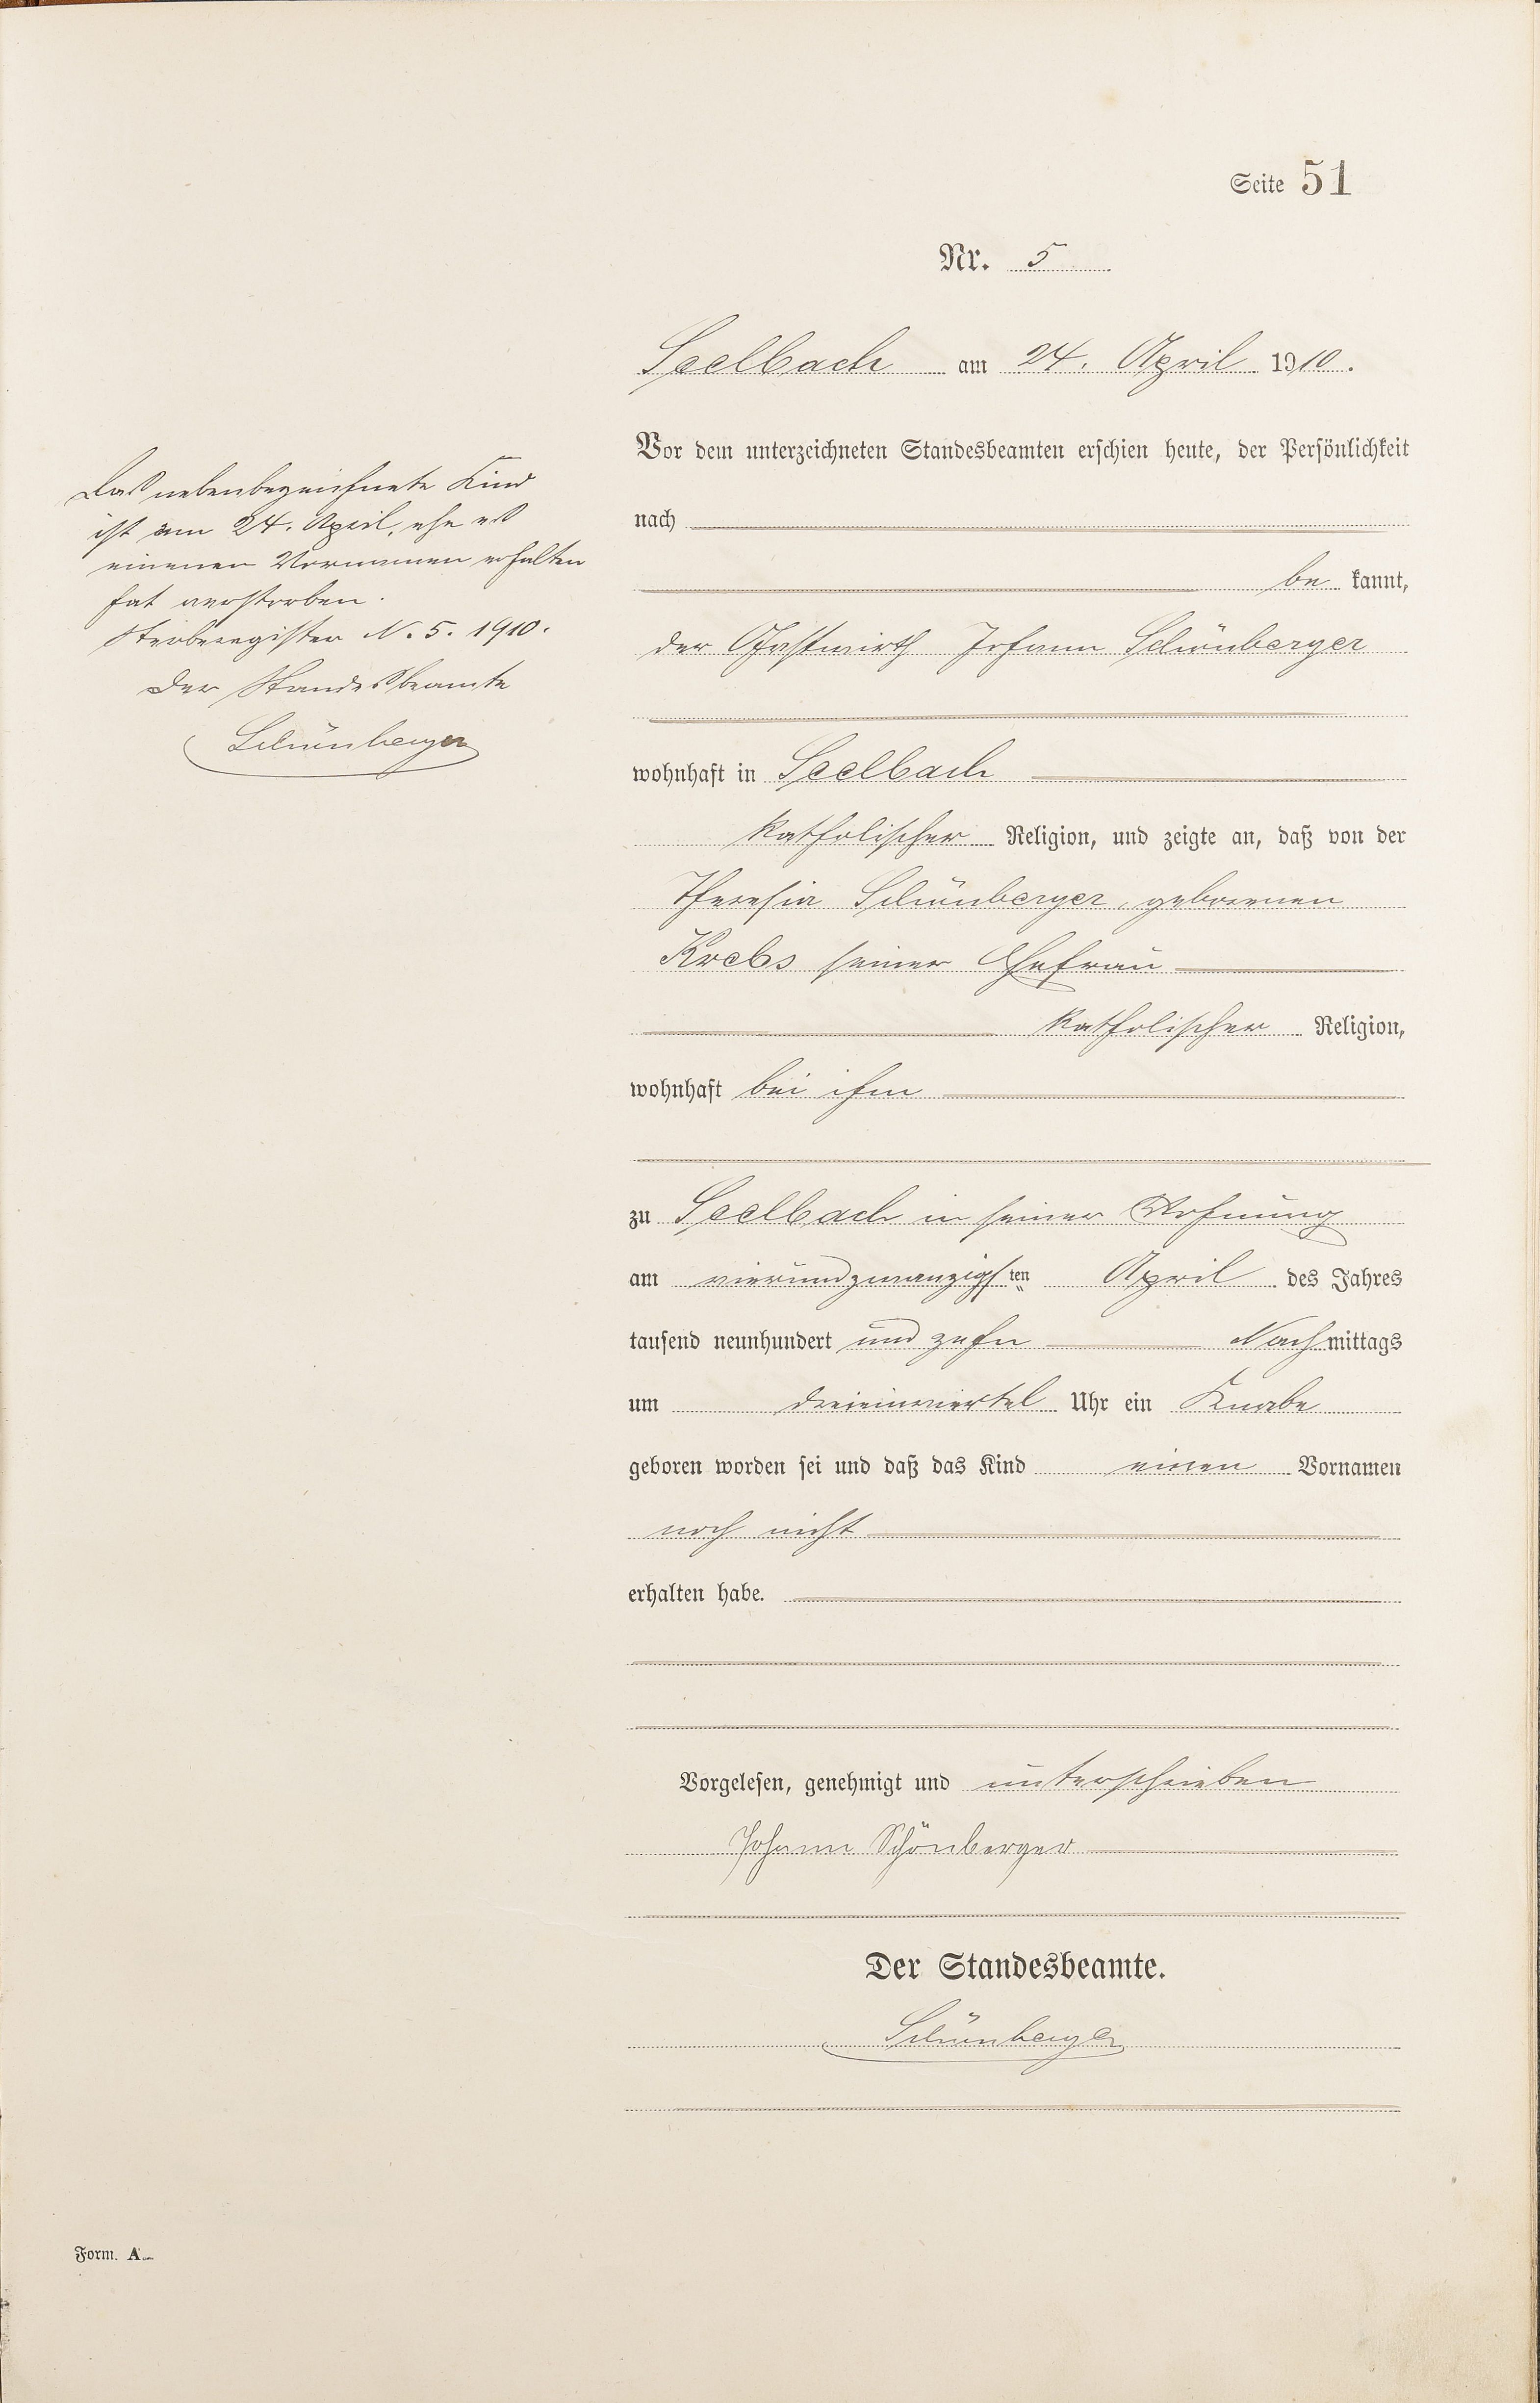 Seite 51
Nr. 5
Seelbach am 24. April 1910.
Vor dem unterzeichneten Standesbeamten erschien heute, der Persönlichkeit
nach
be kannt,
der Gastwirth Johann Schönberger
wohnhaft in Seelbach
katholischer Religion, und zeigte an, daß von der
Theresia Schönberger, geborenen
Krebs seiner Ehefrau
katholischer Religion,
wohnhaft bei ihm
zu Seelbach in seiner Wohnung
am vierundzwanzigsten April des Jahres
tausend neunhundert und zehn Nachmittags
um dreieinviertel Uhr ein Knabe
geboren worden sei und daß das Kind einen Vornamen
noch nicht
erhalten habe.
Vorgelesen, genehmigt und unterschrieben
Johann Schönberger
Der Standesbeamte.
Schönberger
Das nebenbezeichnete Kind
ist am 24. April, ehe es
einenen Vornamen erhalten
hat verstorben.
Sterberegister N. 5. 1910.
Der Standesbeamte
Schönberger
Form. A.